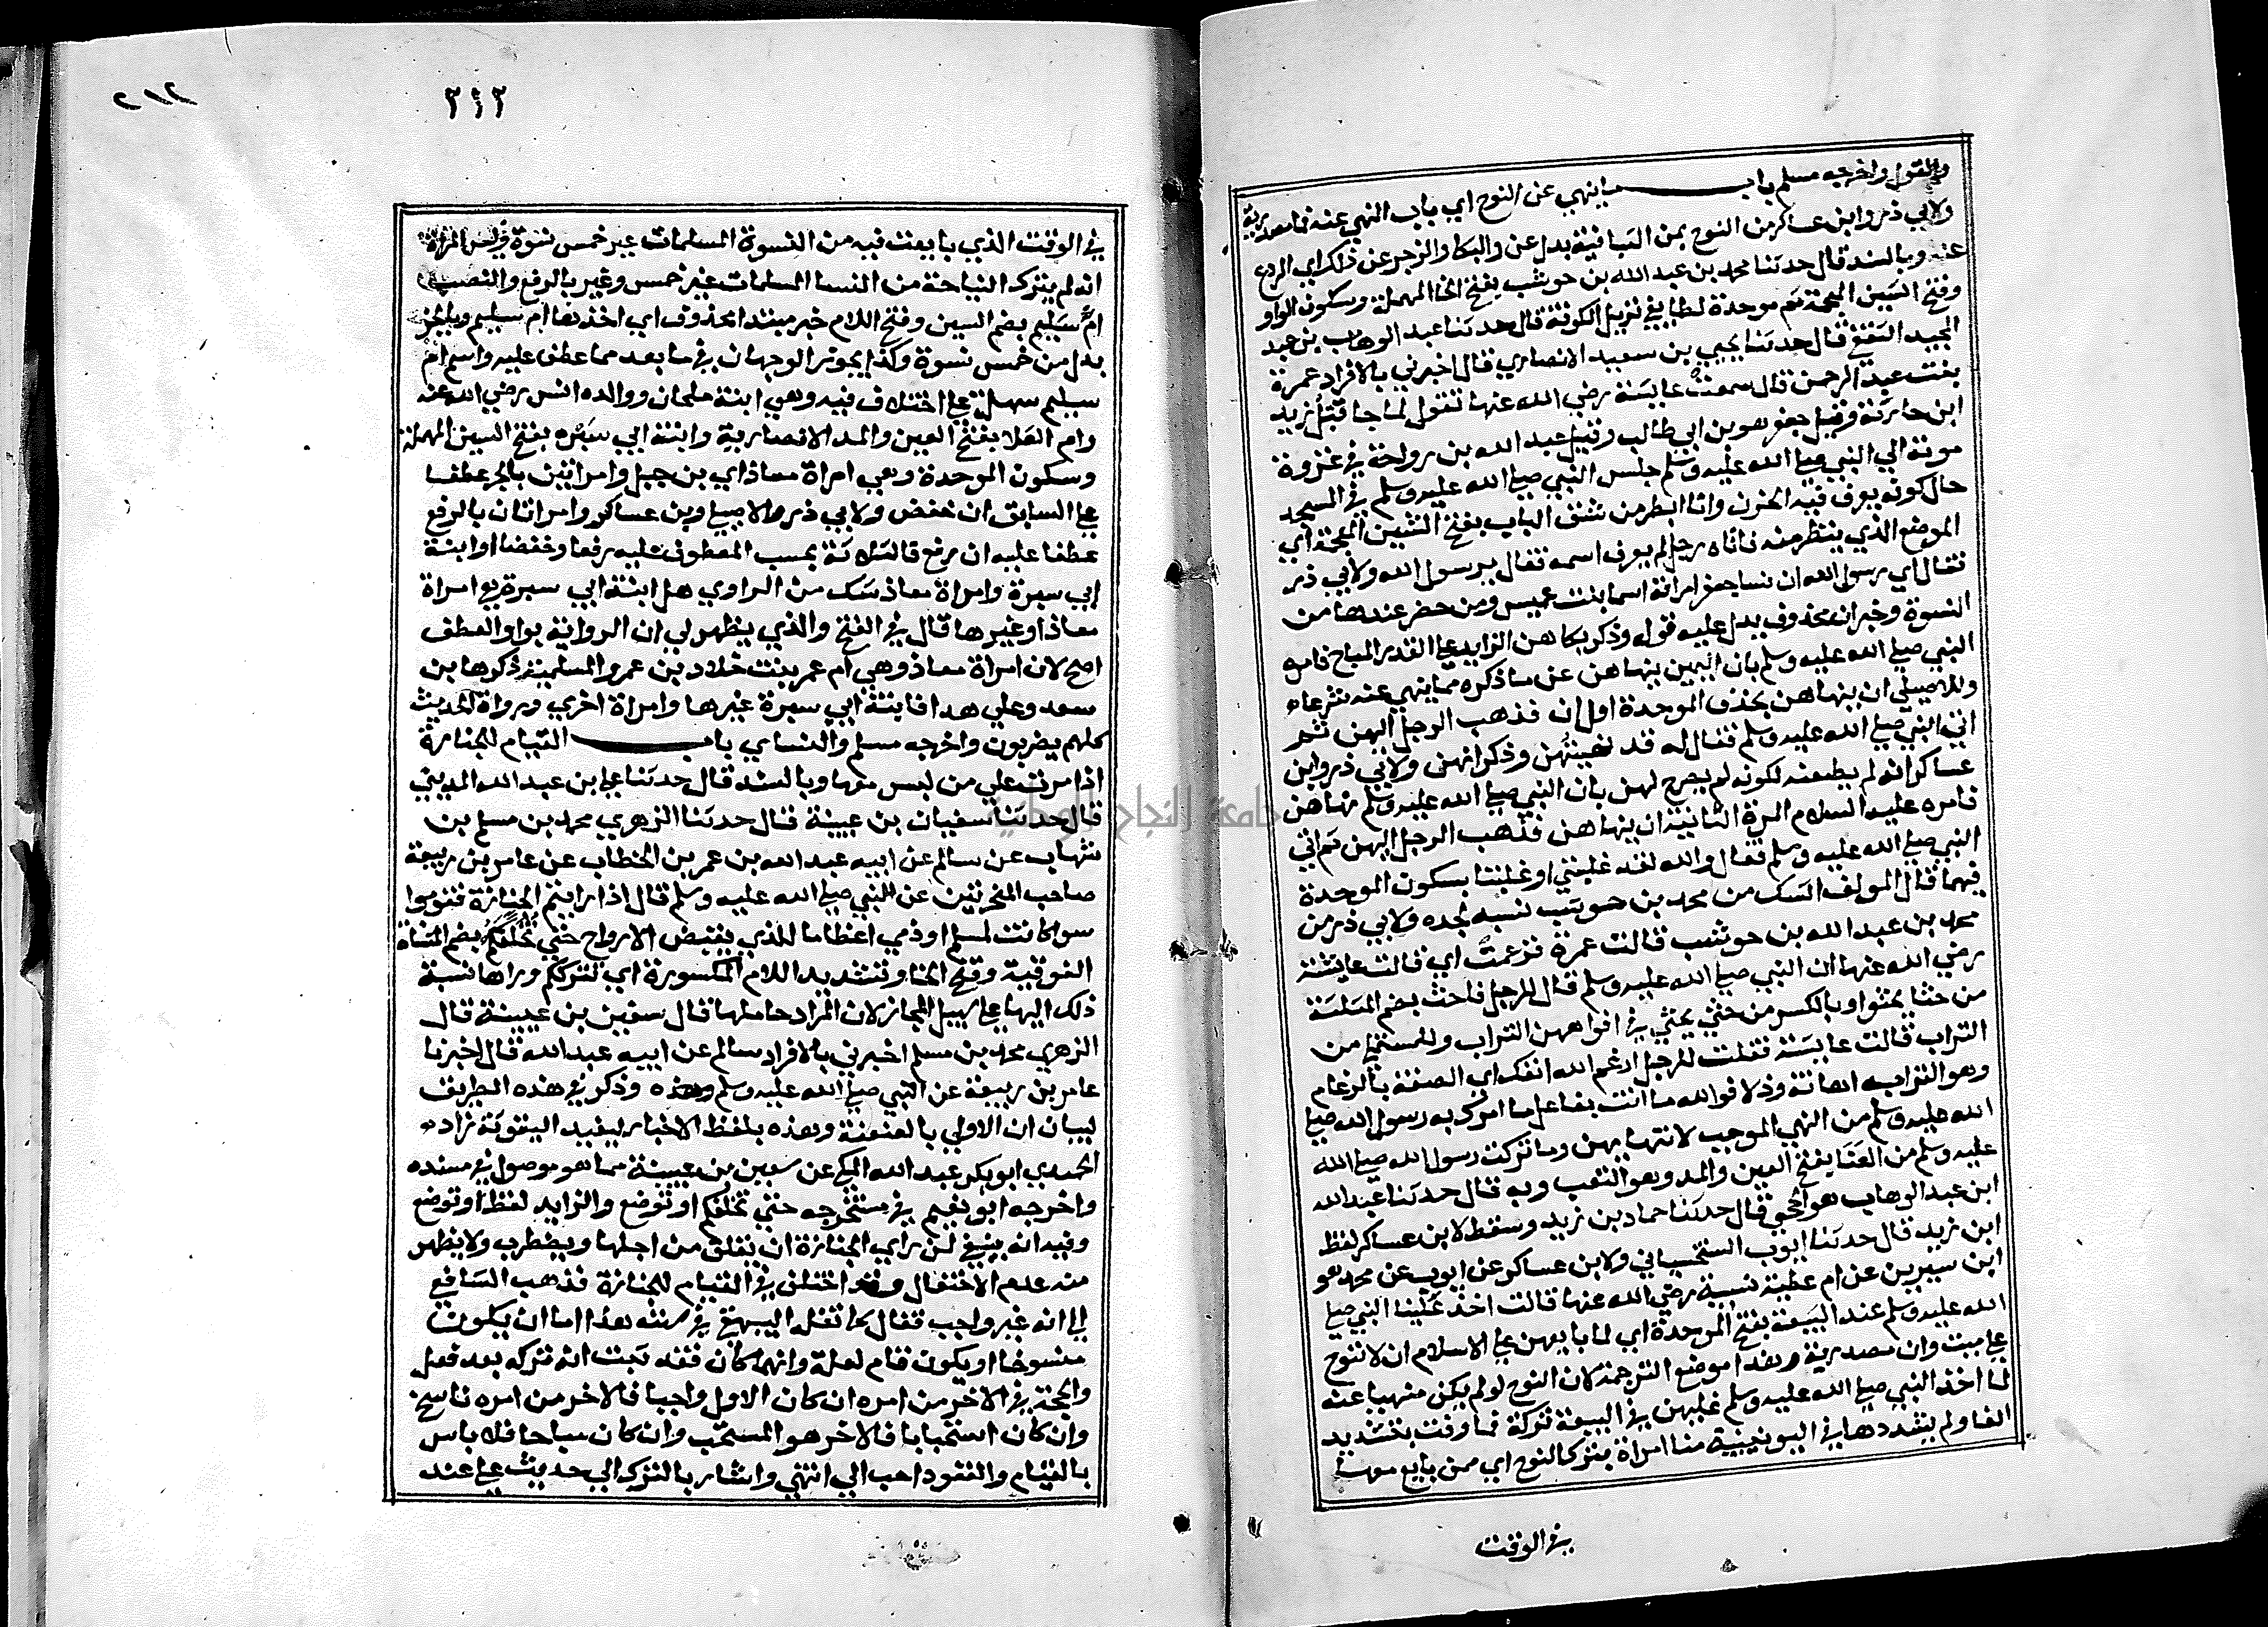 والقول واخرجه مسلم باب ما ينهي عن النوح اي باب النهي عنه فما مصدرية
ولابي ذر وابن عساكر من النوح بمن البيانية بدل عن والبكا والزجر عن ذلك اي الردع
عنه وبالسند قال حدثنا محمد بن عبد الله بن حوشب بفتح الحا المهملة وسكون الواو
وفتح الشين المعجمة ثم موحدة الطايفي نزيل الكوفة قال حدثنا عبد الوهاب بن عبد
المجيد الثقفي قال حدثنا يحيي بن سعيد الانصاري قال اخبرني بالافراد عمرة
بنت عبد الرحمن قال سمعت عايشة رضي الله عنها تقول لما جا قتل زيد
ابن حارثة وقتل جعفر هو بن ابي طالب وقتل عبد الله بن رواحة في غزوة
موتة الي النبي صلي الله عليه وسلم جلس النبي صلي الله عليه وسلم في المسجد
حال كونه يعرف فيه الحزن وانا اطلع من شق الباب بفتح الشين المعجمة اي
الموضع الذي ينظر منه فاتاه رجل لم يعرف اسمه فقال يرسول الله ولابي ذر
فقال اي رسول الله ان نسا جعفر امراته اسما بنت عميس ومن حضر عندها من
النسوة وخبر ان محذوف يدل عليه قوله وذكر بكاهن الزايد علي القدر المباح فامره
النبي صلي الله عليه وسلم بان الهن ينهاهن عن ما ذكره مما ينهي عنه شرعا
وللاصيلي ان ينهاهن بحذف الموحدة اول ان فذهب الرجل اليهن ثم
اتي النبي صلي الله عليه وسلم فقال له قد نهيتهن وذكر انهن ولابي ذر وابن
عساكر انه لم يطعنه لكونه لم يصرح لهن بان النبي صلي الله عليه وسلم نهاهن
فامره عليه السلام المرة الثانية ان ينهاهن فذهب الرجل اليهن ثم اتي
النبي صلي الله عليه وسلم فقال والله لقد غلبنني او غلبننا بسكون الموحدة
فيهما قال المولف الشك من محمد بن حوشب نسبه لجده ولابي ذر من
محمد بن عبد الله بن حوشب قالت عمرة فزعمت اي قالت عايشة
رضي الله عنها ان النبي صلي الله عليه وسلم قال للرجل فاحث بضم المثلثة
من حثا يحثوا وبالكسر من حثي يحثي في افواههن التراب وللمستملي من
التراب قالت عايشة فقلت للرجل ارغم الله انفك اي الصقه بالرغام
وهو التراب اهانة وذلا فوالله ما انت بفاعل ما امرك به رسول الله صلي
الله عليه وسلم من النهي الموجب لانتهايهن وما تركت رسول الله صلي الله
عليه وسلم من العنا بفتح العين والمد وهو التعب وبه قال حدثنا عبد الله
ابن عبد الوهاب هو الحجبي قال حدثنا حماد بن زيد وسقط لابن عساكر لفظ
ابن زيد قال حدثنا ايوب السختياني ولابن عساكر عن ايوب عن محمد هو
ابن سيرين عن ام عطية نسيبة رضي الله عنها قالت اخذ علينا النبي صلي
الله عليه وسلم عند البيعة بفتح الموحدة اي لما بايعهن علي الاسلام ان لا ننوح
علي ميت وان مصدرية وهذا موضع الترجمة لان النوح لو لم يكن منهيا عنه
لما اخذ النبي صلي الله عليه وسلم عليهن في البيعة تركه فما وفت بتشديد
الفا ولم يشددها في اليونينية منا امراة بترك النوح اي ممن بايع معها
في الوقت
٢١٢
٣٤٣
في الوقت الذي بايعت فيه من النسوة المسلمات غير خمس نسوة وليس المراد
انه لم يترك النياحة من النسا المسلمات غير خمس وغير بالرفع والنصب
ام سليم بضم السين وفتح اللام خبر مبتدا محذوف اي احداها ام سليم وبالجر
بدل من خمس نسوة وكذا يجوز الوجهان في ما بعد مما عطف عليه واسم ام
سليم سهلة علي اختلاف فيه وهي ابنة ملحان ووالده انس رضي الله عنه
وام العلا بفتح العين والمد الانصارية وابنة ابي سبره بفتح السين المهملة
وسكون الموحدة وهي امراة معاذ اي بن جبل وامراتين بالجر عطفا
علي السابق ان خفض ولابي ذر والاصيلي وبن عساكر وامراتان بالرفع
عطفا عليه ان رفع فالثلاثة بحسب المعطوف عليه رفعا وخفضا او ابنة
ابي سبرة وامراة معاذ شك من الراوي هل ابنة ابي سبرة هي امراة
معاذ او غيرها قال في الفتح والذي يظهر لي ان الرواية بواو العطف
اصح لان امراة معاذ وهي ام عمر بنت خلاد بن عمرو السلمية ذكرها بن
سعد وعلي هذا فابنة ابي سبرة غيرها وامراة اخري ورواة الحديث
كلهم بصريون واخرجه مسلم والنساي باب القيام للجنازة
اذا مرت علي من ليس معها وبالسند قال حدثنا علي بن عبد الله المديني
قال حدثنا سفيان بن عيينة قال حدثنا الزهري محمد بن مسلم بن
شهاب عن سالم عن ابيه عبد الله بن عمر بن الخطاب عن عامر بن ربيعة
صاحب الهجرتين عن النبي صلي الله عليه وسلم قال اذا رايتم الجنازة فقوموا
سوا كانت لمسلم او ذمي اعظاما للذي يقبض الارواح حتي تخلفكم بضم المثناة
الفوقية وفتح الخا وتشديد اللام المكسورة اي تترككم وراها نسبة
ذلك اليها علي سبيل المجاز لان المراد حاملها قال سفين بن عيينة قال
الزهري محمد بن مسلم اخبرني بالافراد سالم عن ابيه عبد الله قال اخبرنا
عامر بن ربيعة عن النبي صلي الله عليه وسلم وهذه وذكر في هذه الطريق
لبيان ان الاولي بالعنعنة وهذه بلفظ الاخبار ليفيد التقوية زاد
الحميدي ابو بكر عبد الله المكي عن سفين بن عيينة مما هو موصول في مسنده
واخرجه ابو نعيم في مستخرجه حتي تخلفكم او توضع والزايد لفظ او توضع
وفيه انه ينبغي لمن راي الجنازة ان يقلق من اجلها ويضطرب ولا يظهر
منه عدم الاحتفال وقد اختلف في القيام للجنازة فذهب الشافعي
الي انه غير واجب فقال كما نقله البيهقي في سننه هذا اما ان يكون
منسوخا او يكون قام لعلة وايهما كان فقد ثبت انه تركه بعد فعله
والحجة في الاخر من امره ان كان الاول واجبا فالاخر من امره ناسخ
وان كان استحبابا فالاخر هو المستحب وان كان مباحا فلا باس
بالقيام والقعود احب الي انتهي واشار بالترك الي حديث علي عند
جامعة النجاح الوطنية